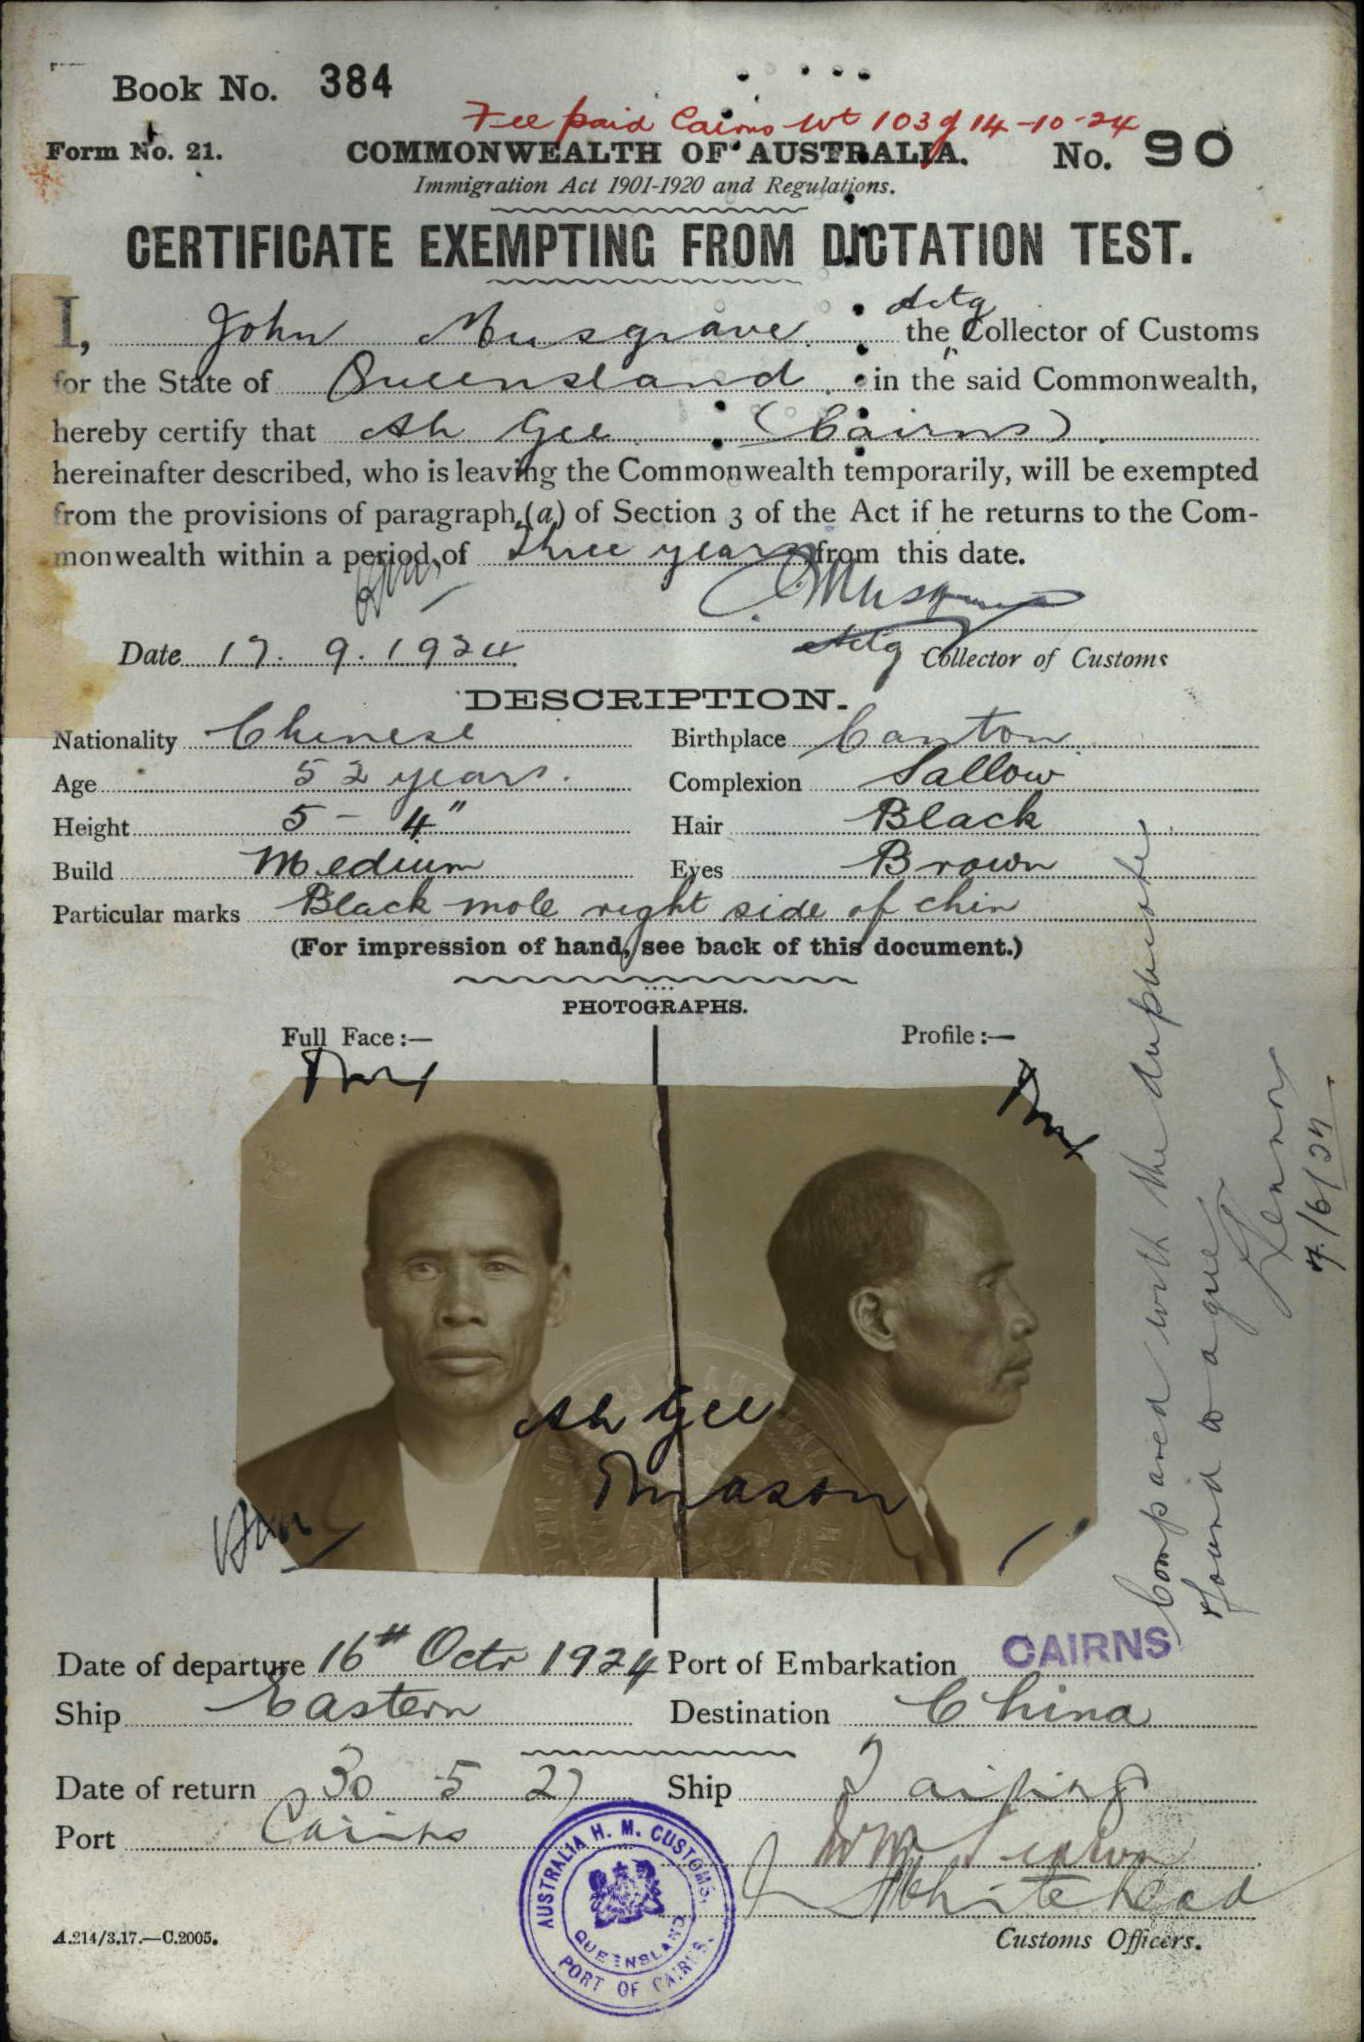 Book No. 384
Fee paid Cairns Wt 103 of 14-10-24
Form No. 21. COMMONWEALTH OF AUSTRALIA. No. 90
Immigration Act 1901-1920 and Regulations.
CERTIFICATE EXEMPTING FROM DICTATION TEST.
Actg
I, John Musgrave the Collector of Customs
for the State of Queensland in the said Commonwealth,
hereby certify that Ah Gee (Cairns)
hereinafter described, who is leaving the Commonwealth temporarily, will be exempted
from the provisions of paragraph (a) of Section 3 of the Act if he returns to the Com-
monwealth within a period of three years from this date.
Musgrave
Date 17. 9. 1924 Actg Collector of Customs
DESCRIPTION.
Nationality Chinese Birthplace Canton
Age 52 years. Complexion Sallow
Height 5 - 4" Hair Black
Build Medium Eyes Brown
Particular marks Black mole right side of chin
(For impression of hand, see back of this document.)
PHOTOGRAPHS.
Full Face:— Profile:—
Ah Gee
Mason
Compared with the duplicate
& found to agree
Lennon
7/6/27
Date of departure 16th Octr 1924 Port of Embarkation CAIRNS
Ship Eastern Destination China
Date of return 30 5 27 Ship Taiping
Port Cairns
Whitehead
AUSTRALIA H. M. CUSTOMS.
QUEENSLAND
PORT OF CAIRNS.
A.214/3.17.—C.2005. Customs Officers.